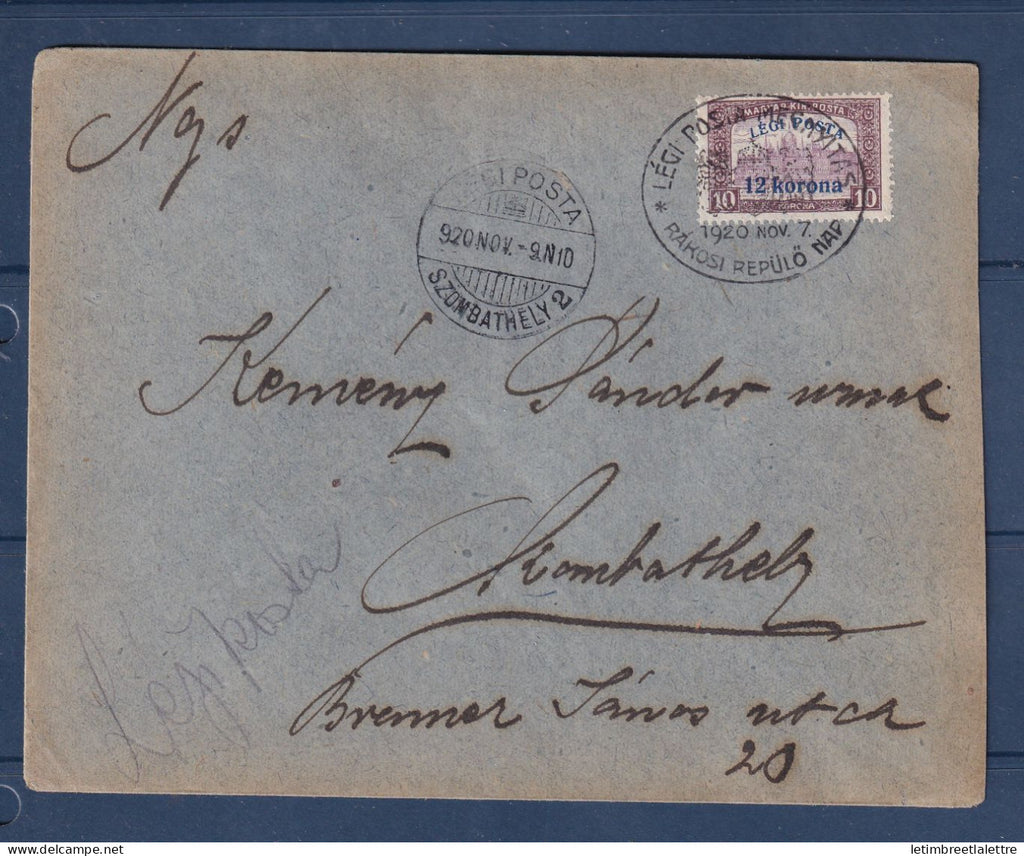 Ngs
MAGYAR KIR. POSTA
LÉGI POSTA
12 korona
10 KORONA 10
* LÉGI POSTA MEGNYITÁS *
1920 NOV. 7.
RÁKOSI REPÜLŐ NAP
LÉGI POSTA
920 NOV. - 9. N 10
SZOMBATHELY 2
Kemény Sándor urnak
Szombathely
Brenner János utca
20
Légi posta
letimbreetlalettre.com
letimbreetlalettre